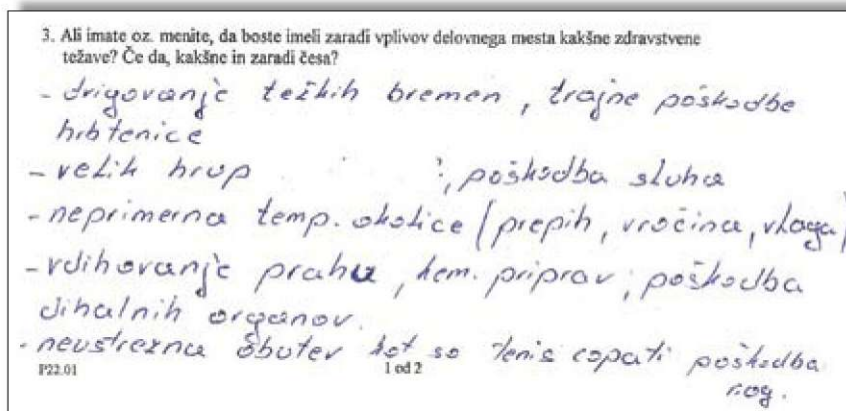 3. Ali imate oz. menite, da boste imeli zaradi vplivov delovnega mesta kakšne zdravstvene
težave? Če da, kakšne in zaradi česa?
- drigovanje težkih bremen, trajne poškodbe
hrbtenice
- velik hrup ; poškodba sluha
- neprimerna temp. okolice (prepih, vročina, vlaga)
- vdihovanje prahu, kem. priprav; poškodba
dihalnih organov.
- neustrezna obutev kot so tenis copati poškodba
nog.
P22.01 1 od 2